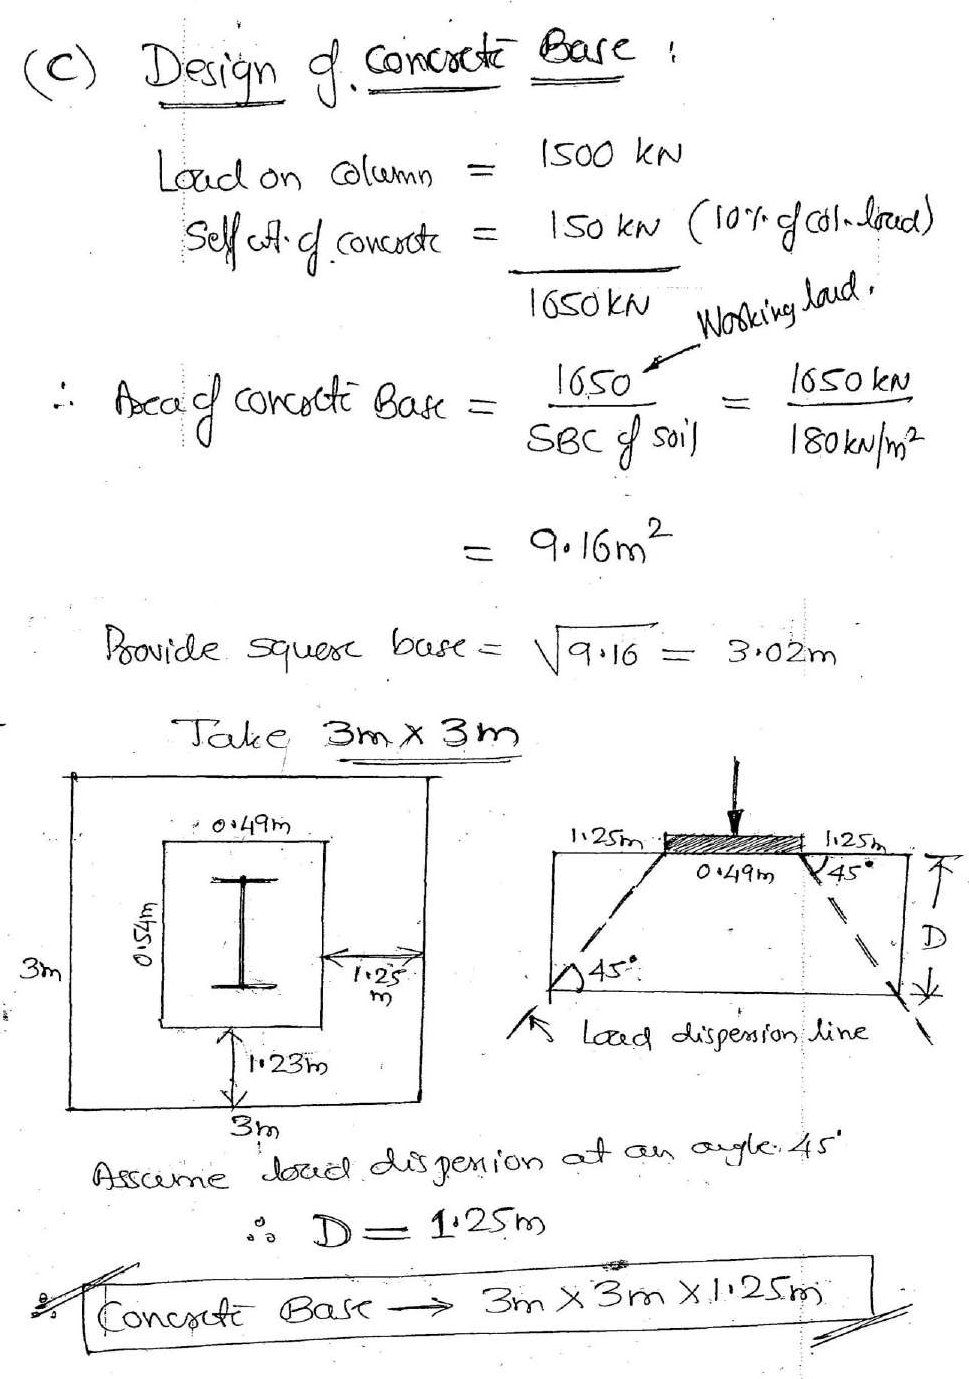 (C) Design of Concrete Base :
Load on column = 1500 kN
Self wt. of concrete = 150 kN (10% of col. load)
1650 kN
Working load.
∴ Area of concrete Base = 1650 / SBC of soil = 1650 kN / 180 kN/m²
= 9.16m²
Provide square base = √9.16 = 3.02m
Take 3m x 3m
0.49m
0.54m
3m
1.25 m
1.23m
3m
1.25m
1.25m
0.49m
45°
D
45°
Load dispersion line
Assume load dispersion at an angle 45°
∴ D = 1.25m
∴ Concrete Base → 3m x 3m x 1.25m